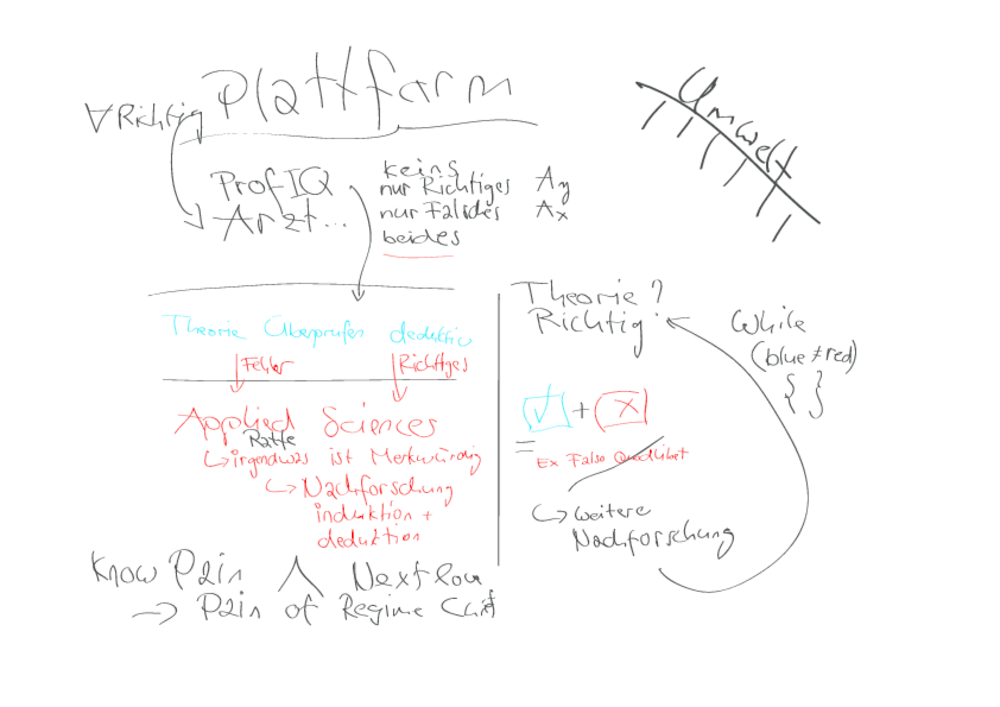 Plattform
∀ Richtig
Umwelt
Prof IQ
Arzt...
keins
nur Richtiges Ay
nur Falsches Ax
beides
Theorie Überprüfen deduktiv
Fehler
Richtiges
Applied Sciences
Ratte
↳ irgendwas ist Merkwürdig
↳ Nachforschung
induktion +
deduktion
Know Pain ∧ Nextflow
→ Pain of Regime
Theorie ?
Richtig
While
(blue ≠ red)
{ }
✓ + X
=
Ex Falso Quodlibet
↳ weitere
Nachforschung